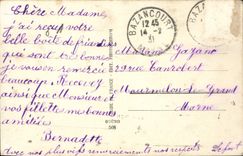 Chère Madame,
j'ai reçu votre
belle boite de friandises
qui sont très bonnes
je vous en remercie
beaucoup. Recevez
ainsi que Monsieur et
vos fillettes mes bonnes
amitiés
Bernadette
avec nos plus vifs remerciements nos respects
BAZANCOURT
12 45
14 - 2
31
MARNE
Madame Gazano
29 rue Canrobert
Mourmelon le Grand
Marne